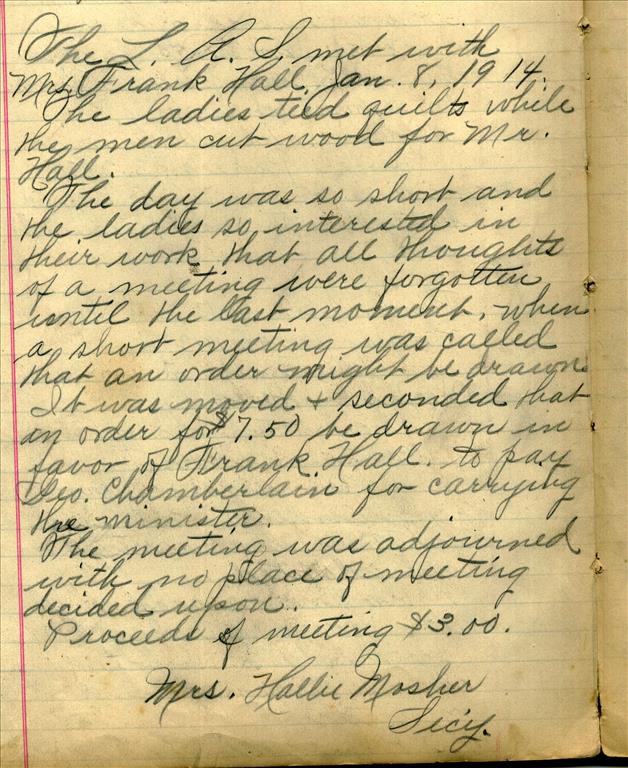 The L. A. S. met with
Mrs. Frank Hall, Jan. 8, 1914.
The ladies tied quilts while
the men cut wood for Mr.
Hall.
The day was so short and
the ladies so interested in
their work that all thoughts
of a meeting were forgotten
until the last moment, when
a short meeting was called
that an order might be drawn.
It was moved + seconded that
an order for $7.50 be drawn in
favor of Frank Hall. to pay
Geo. Chamberlain for carrying
the minister.
The meeting was adjourned
with no place of meeting
decided upon.
Proceeds of meeting $3.00.
Mrs. Hallie Mosher
Sec'y.